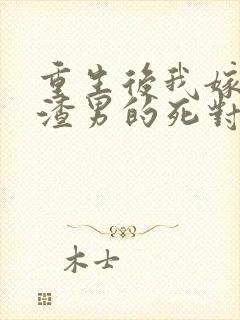 重生後我嫁
渣男的死對
木士